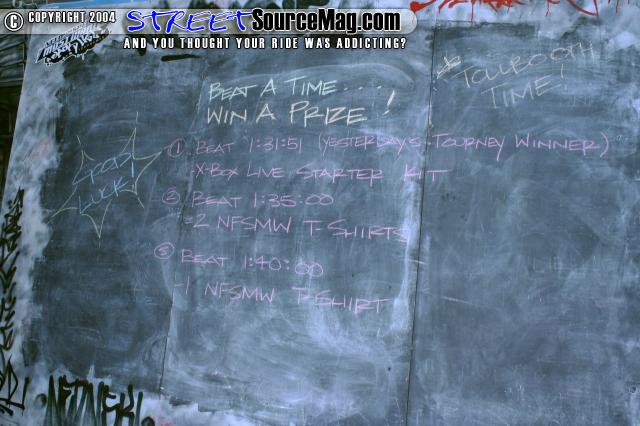 © COPYRIGHT 2004 STREETSourceMag.com
AND YOU THOUGHT YOUR RIDE WAS ADDICTING?
BEAT A TIME....
WIN A PRIZE!
TOLLBOOTH
TIME!
GOOD
LUCK!
① BEAT 1:31:51 (YESTERDAY'S TOURNEY WINNER)
-X-BOX LIVE STARTER KIT
② BEAT 1:35:00
-2 NFSMW T-SHIRTS
③ BEAT 1:40:00
-1 NFSMW T-SHIRT